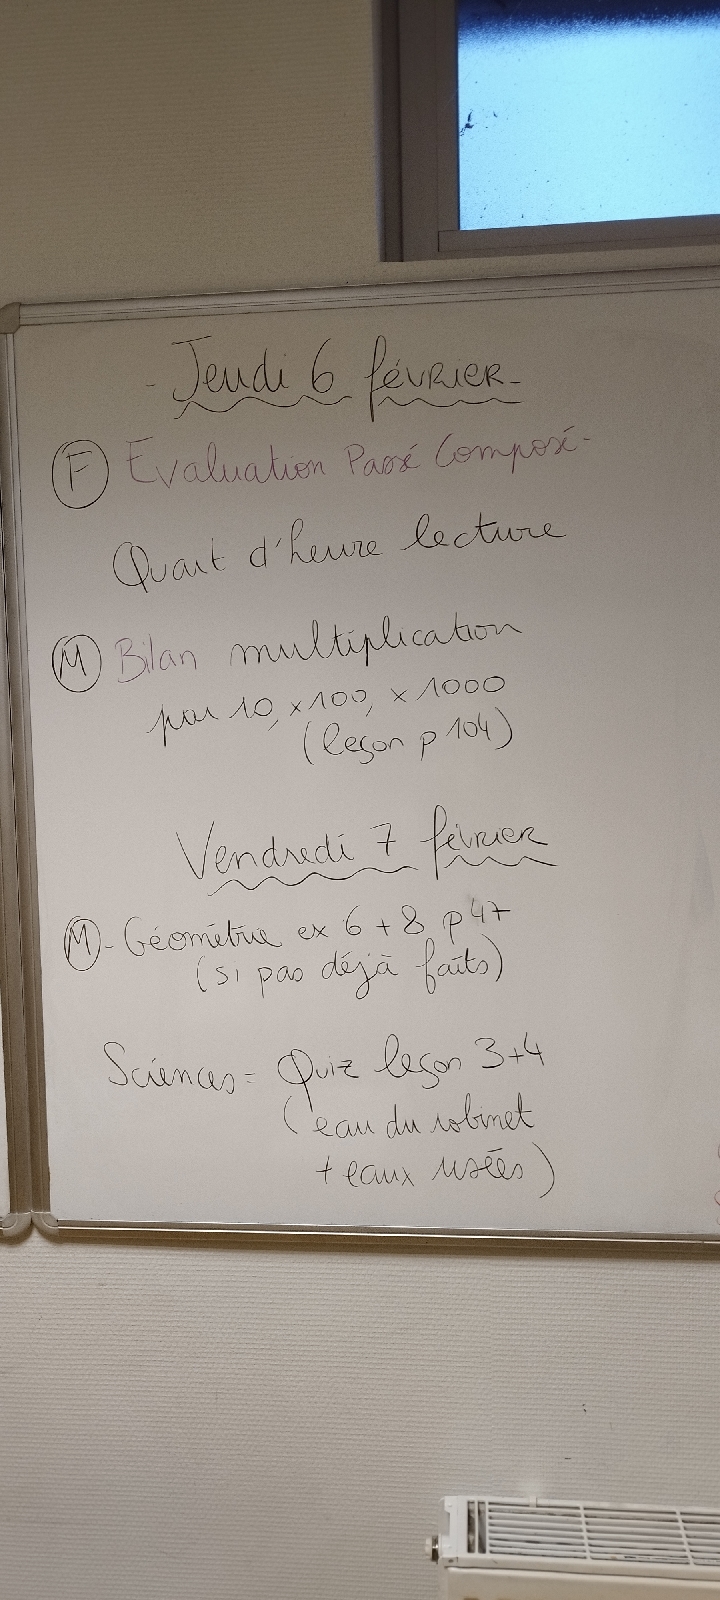 - Jeudi 6 février -
F Evaluation Passé Composé -
Quart d'heure lecture
M Bilan multiplication
par 10, x100, x 1000
(leçon p 104)
Vendredi 7 février
M - Géométrie ex 6 + 8 p 47
(si pas déjà faits)
Sciences = Quiz leçon 3+4
(eau du robinet
+ eaux usées)